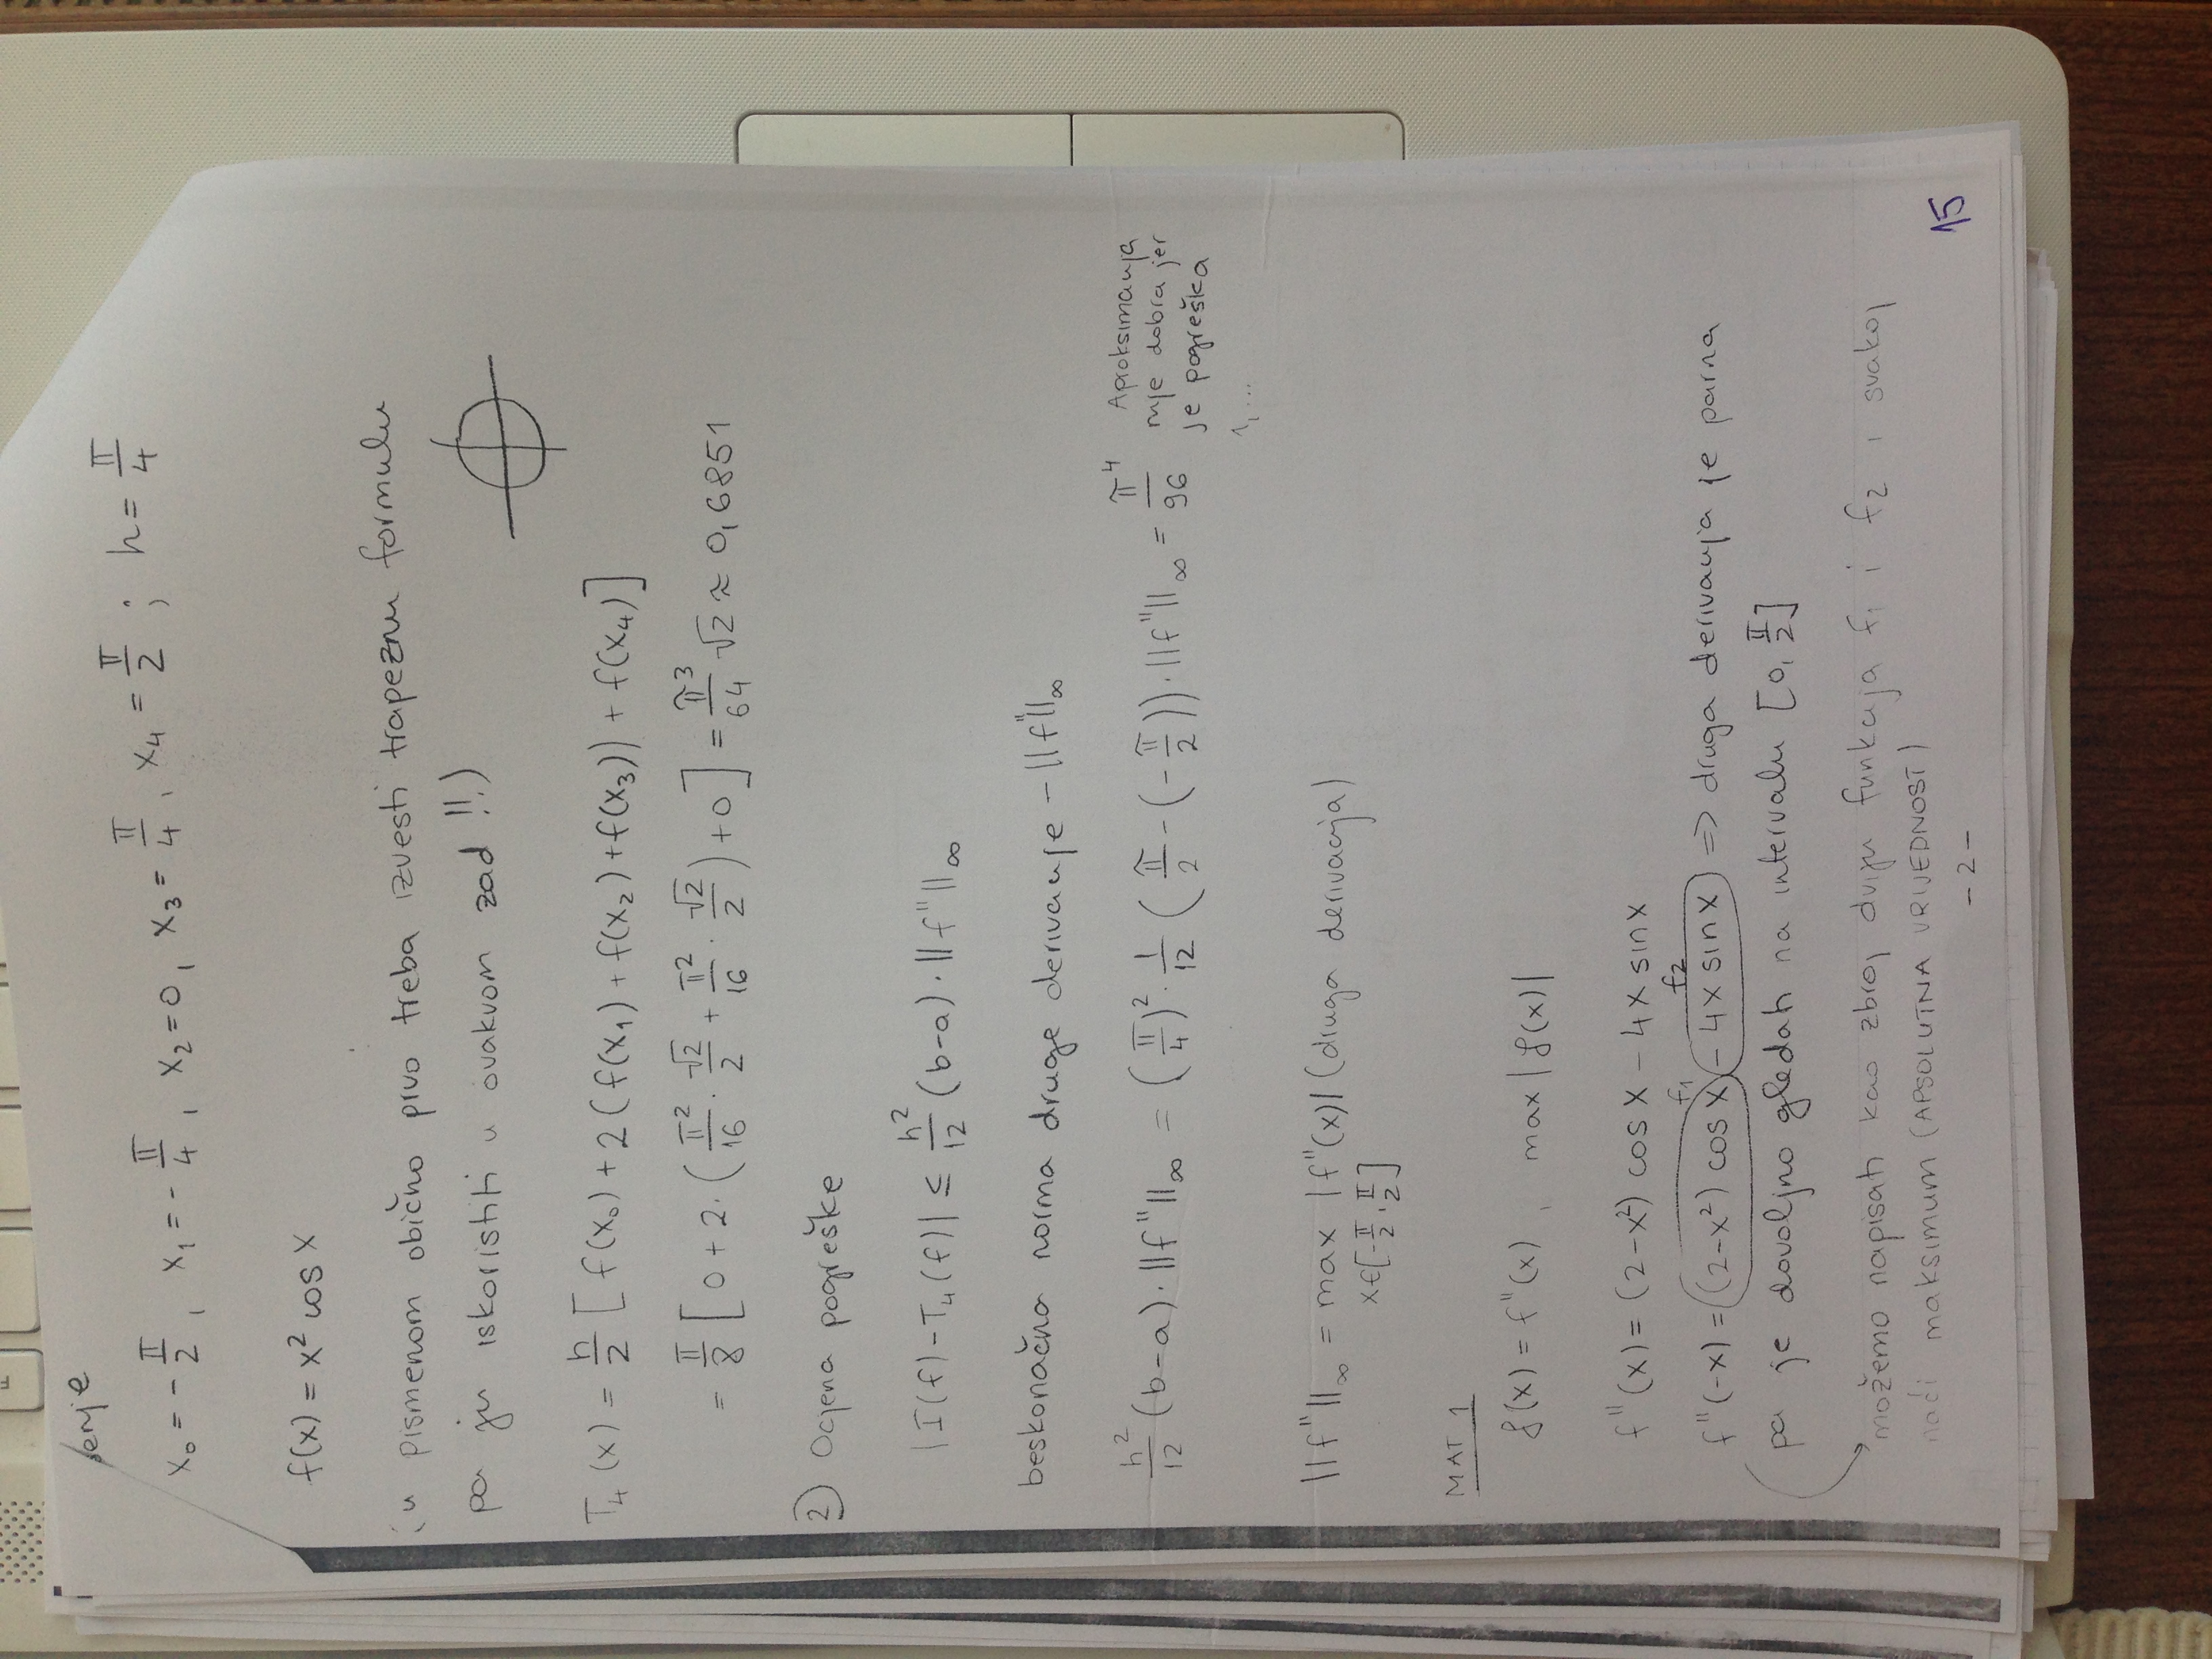 šenje
x₀ = -π/2, x₁ = -π/4, x₂ = 0, x₃ = π/4, x₄ = π/2 ; h = π/4
f(x) = x² cos x
(u pismenom obično prvo treba izvesti trapeznu formulu
pa ju iskoristiti u ovakvom zad !!)
T₄(x) = h/2 [f(x₀) + 2(f(x₁) + f(x₂) + f(x₃)) + f(x₄)]
= π/8 [0 + 2·(π²/16 · √2/2 + π²/16 · √2/2) + 0] = π³/64 √2 ≈ 0,6851
2) Ocjena pogreške
|I(f) - T₄(f)| ≤ h²/12 (b-a)·||f''||∞
beskonačna norma druge derivacije - ||f''||∞
h²/12 (b-a)·||f''||∞ = (π/4)² · 1/12 (π/2 - (-π/2))·||f''||∞ = π⁴/96
Aproksimacija
nije dobra jer
je pogreška
1,...
||f''||∞ = max |f''(x)| (druga derivacija)
x∈[-π/2, π/2]
MAT 1
g(x) = f''(x), max |g(x)|
f''(x) = (2-x²) cos x - 4x sin x
f₁ f₂
f''(-x) = (2-x²) cos x - 4x sin x => druga derivacija je parna
pa je dovoljno gledati na intervalu [0, π/2]
možemo napisati kao zbroj dviju funkcija f₁ i f₂ i svakoj
naći maksimum (APSOLUTNA VRIJEDNOST)
- 2 -
15